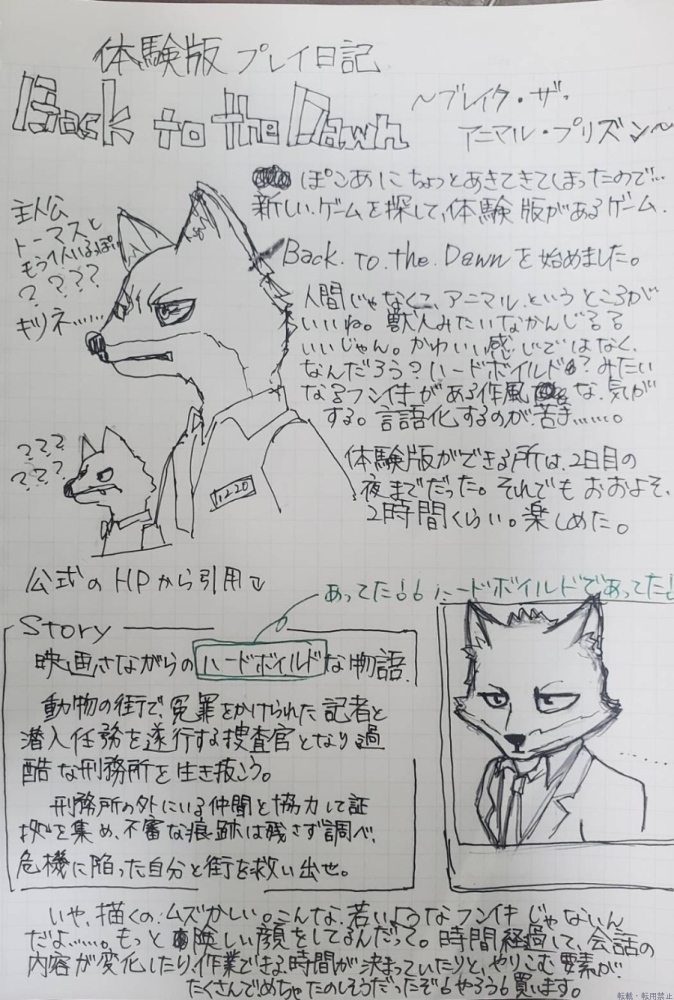 体験版 プレイ日記
Back to the Dawn
～ブレイク・ザ・
アニマル・プリズン～
ぽこあにちょっとあきてきてしまったので…
新しいゲームを探して、体験版があるゲーム、
Back.To.the.Dawnを始めました。
主人公
トーマスと
もう1人いるっぽい
？？？？
キツネ……
人間じゃなくて、アニマルというところが
いいね。獣人みたいなかんじする
いいじゃん。かわいい感じではなく、
なんだろう？ハードボイルド？みたい
なフンイキがある作風な気が
する。言語化するのが苦手……。
？？？
？？？
1220
体験版ができる所は、2日目の
夜までだった。それでもおおよそ、
2時間くらい。楽しめた。
公式のHPから引用↓
あってた！！ハードボイルドであってた！
Story
映画さながらのハードボイルドな物語。
動物の街で、冤罪をかけられた記者と
潜入任務を遂行する捜査官となり過
酷な刑務所を生き抜こう。
刑務所の外にいる仲間と協力して証
拠を集め、不審な痕跡は残さず調べ、
危機に陥った自分と街を救い出せ。
……
いや、描くの、ムズかしい。こんな、若いようなフンイキじゃないん
だよ……。もっと険しい顔をしてるんだって。時間経過して、会話の
内容が変化したり、作業できる時間が決まっていたりと、やりこむ要素が
たくさんでめちゃたのしそうだったぞ！やろう！買います。
転載・転用禁止